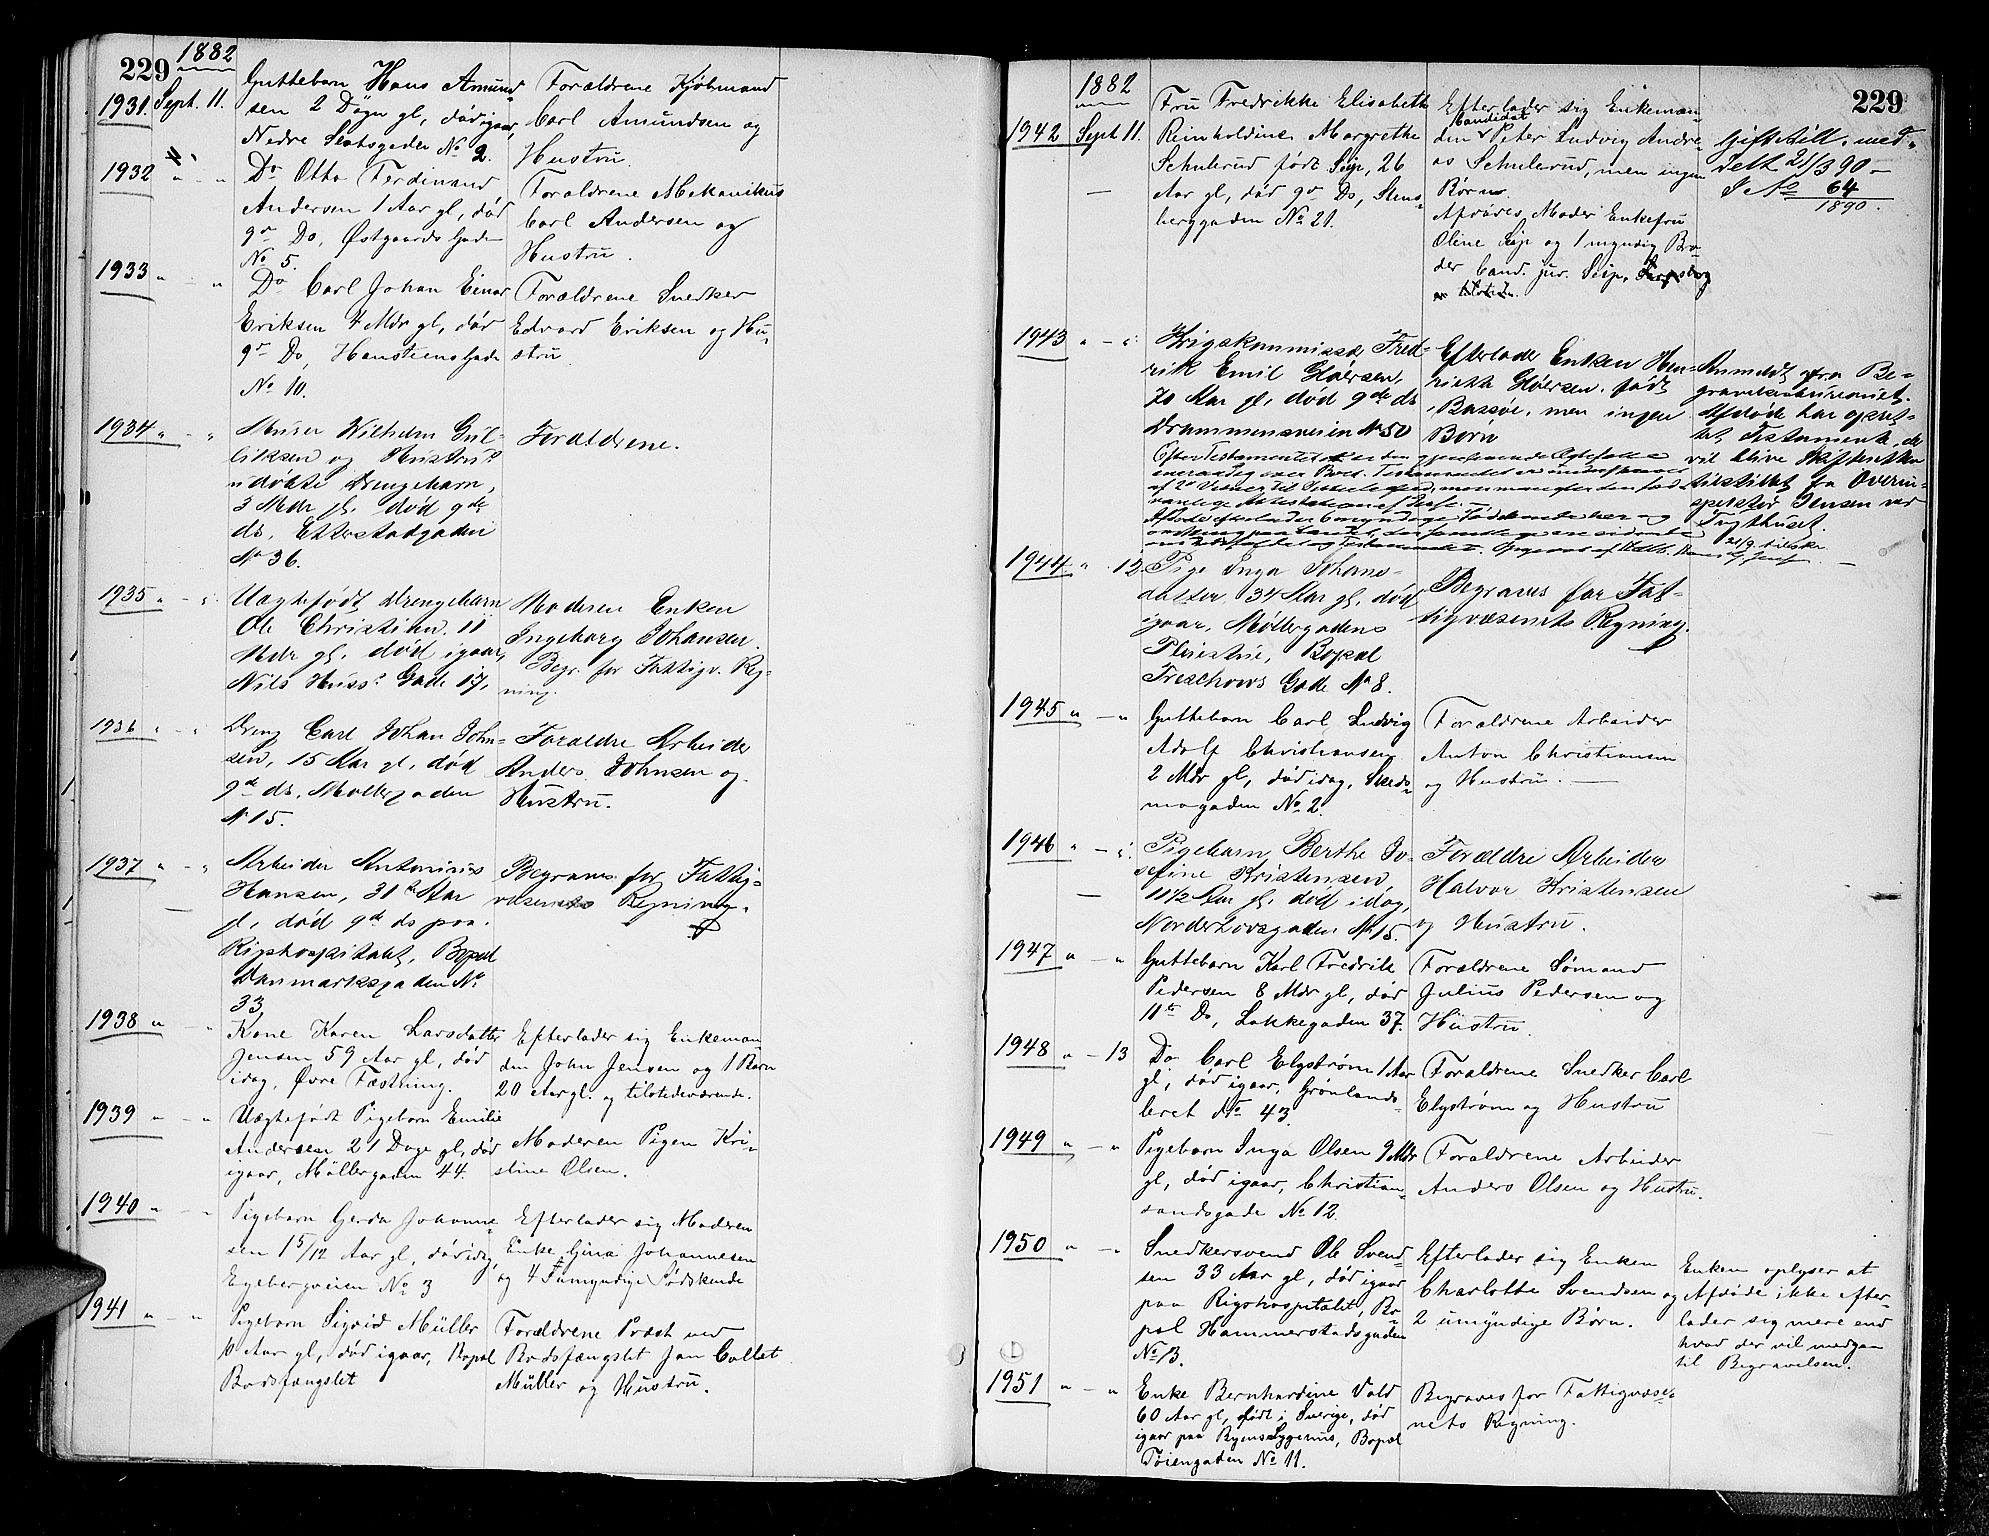 229
1882
1931. Sept. 11.
Guttebarn Hans Amund-
sen 2 Døgn gl, død igaar,
Nedre Slotsgaden No 2.
Forældrene Kjøbmand
Carl Amundsen og
Hustru.
1932 " - "
Do Otto Ferdinand
Andersen 1 Aar gl, død
9de Ds, Østgaards Gade
No 5.
Forældrene Mekanikus
Carl Andersen og
Hustru.
1933 " - "
Do Carl Johan Einar
Eriksen 4 Mdr gl, død
9de Ds, Hansteens Gade
No 10.
Forældrene Snedker
Edvard Eriksen og Hu-
stru
1934 " - "
Murer Wilhelm Gul-
liksen og Hustrus
udøbte Drengebarn,
3 Mdr gl. død 9de
ds, Etterstadgaden
No 36.
Forældrene.
1935 " - "
Uægtefødt Drengebarn
Ole Christian. 11
Mdr gl. død igaar,
Nils Huss' Gade 17.
Moderen Enken
Ingeborg Johansen.
Begr. for Fattigv. Reg-
ning.
1936 " - "
Dreng Carl Johan John-
sen, 15 Aar gl, død
9de ds, Møllergaden
No 15.
Forældre Arbeider
Anders Johnsen og
Hustru.
1937 " - "
Arbeider Antonius
Hansen, 31 Aar
gl, død 9de ds paa
Rigshospitalet, Bopæl
Danmarksgaden No
33.
Begraves for Fattig-
væsenets Regning.
1938 " - "
Kone Karen Larsdatter
Jensen 59 Aar gl, død
idag, Øvre Fæstning.
Efterlader sig Enkeman-
den John Jensen og 1 Barn
20 Aar gl. og tilstedeværende.
1939 " - "
Uægtefødt Pigebarn Emilie
Andersen 21 Dage gl, død
igaar, Møllergaden 44.
Moderen Pigen Kri-
stine Olsen.
1940 " - "
Pigebarn Gerda Johanne-
sen 1 5/12 Aar gl, død idag,
Egebergveien No 3
Efterlader sig Moderen
Enke Gina Johannesen
og 4 umyndige Sødskende
1941 " - "
Pigebarn Sigrid Müller
10 Aar gl, død igaar, Bopæl
Bodsfængslet
Forældrene Præst ved
Bodsfængslet Jan Collet
Müller og Hustru.
229
1882
1942 Sept 11.
Fru Fredrikke Elisabeth
Reinholdine Margrethe
Schulerud født Seip, 26
Aar gl, død 9de Ds, Stens-
berggaden No 21.
Efterlader sig Enkeman-
den Kandidat Peter Ludvig Andre-
as Schulerud, men ingen
Børn.
Afdødes Moder Enkefru
Oline Seip og 1 myndig Bro-
der Cand. jur. Seip,
Giftetill. med-
delt 21/3 90 -
No 64
1890.
1943 " - "
Krigskommissær Fred-
rik Emil Gløersen,
70 Aar gl, død 9de ds
Drammensveien No 50
Efterlader Enken Hen-
riette Gløersen, født
Bassøe, men ingen
Børn
Anmeldt fra Be-
gravelsesbureauet.
Afdøde har opret-
tet Testamente, der
vil blive Skifteretten
tilstillet fra Overin-
spektør Jensen ved
Tugthuset.
1944 " - 12.
Pige Inga Johans-
datter 34 Aar gl, død
igaar, Møllergadens
Pleiestue, Bopæl
Treschows Gade No 8.
Begraves for Fat-
tigvæsenets Regning.
1945 " - "
Guttebarn Carl Ludvig
Adolf Christiansen
2 Mdr gl, død idag, Skeds-
mogaden No 2.
Forældrene Arbeider
Anton Christiansen
og Hustru.
1946 " - "
Pigebarn Berthe Jo-
sefine Kristensen
11 1/2 Aar gl, død idag,
Norderhovsgaden No 15.
Forældre Arbeider
Halvor Kristensen
og Hustru.
1947 " - "
Guttebarn Karl Fredrik
Pedersen 8 Mdr gl, død
11te Ds, Lakkegaden 37.
Forældrene Sømand
Julius Pedersen og
Hustru.
1948 " - 13
Do Carl Elgstrøm 1 Aar
gl, død igaar, Grønlands-
leret No 43.
Forældrene Snedker Carl
Elgstrøm og Hustru
1949 " - "
Pigebarn Inga Olsen 9 Mdr
gl, død igaar, Christian-
sandsgade No 12.
Forældrene Arbeider
Anders Olsen og Hustru.
1950 " - "
Snedkersvend Ole Svend-
sen 33 Aar gl, død igaar
paa Rigshospitalet, Bo-
pæl Hammerstadsgaden
No 13.
Efterlader sig Enken
Charlotte Svendsen og
2 umyndige Børn.
Enken oplyser at
Afdøde ikke efter-
lader sig mere end
hvad der vil medgaa
til Begravelsen.
1951 " - "
Enke Bernhardine Vold
60 Aar gl, født i Sverige, død
igaar paa Byens Sygehus, Bopæl
Tøiengaden No 11.
Begraves for Fattigvæse-
nets Regning.